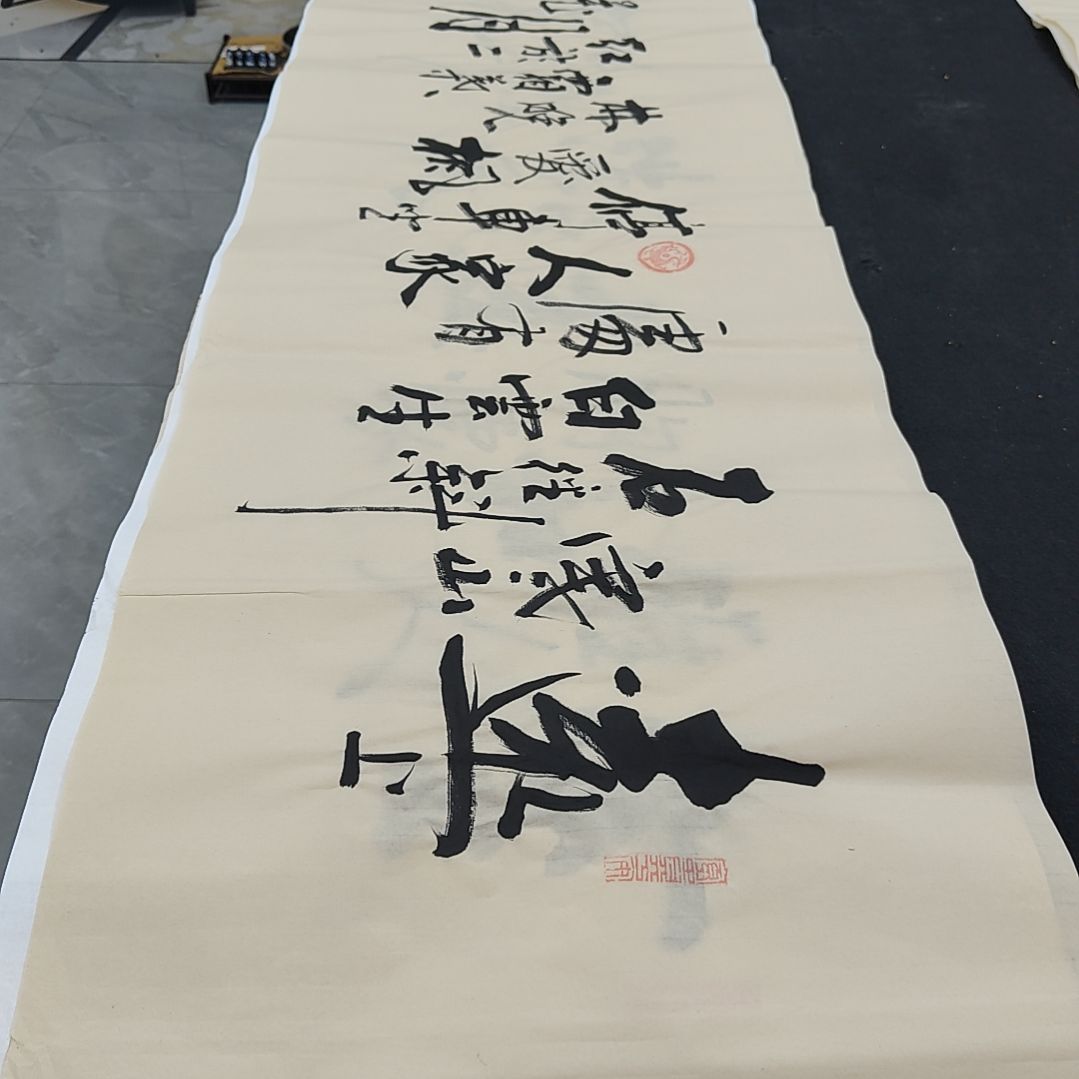 遠上
寒山
石徑斜
白雲生
處有
人家
停車坐
愛楓
林晚
霜葉
紅於二
月